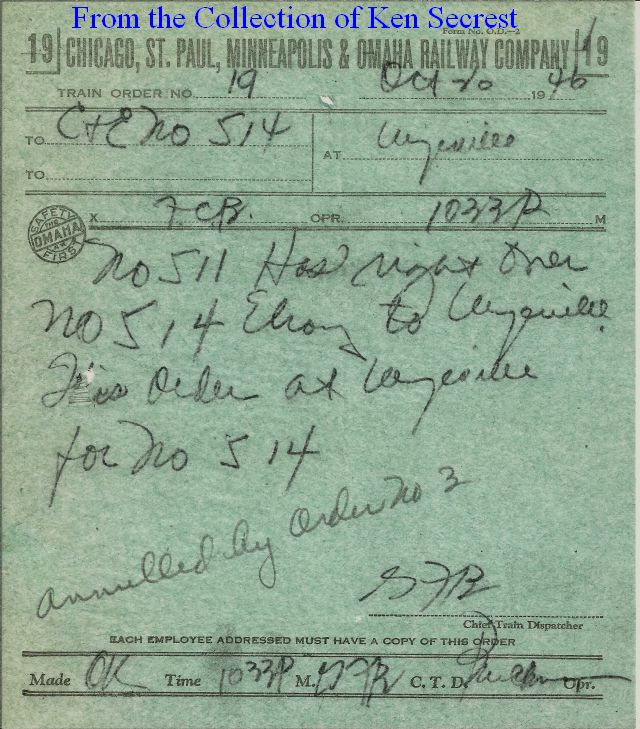 From the Collection of Ken Secrest
Form No. O.D.—2
19 CHICAGO, ST. PAUL, MINNEAPOLIS & OMAHA RAILWAY COMPANY 19
TRAIN ORDER NO. 19 Oct 20 1946
TO C+E No 514 AT Wyeville
TO
X OPR. 1033 P M
SAFETY THE OMAHA FIRST
No 511 Has right over
No 514 Elroy to Wyeville
This order at Wyeville
for No 514
annulled by order no 3
Chief Train Dispatcher
EACH EMPLOYEE ADDRESSED MUST HAVE A COPY OF THIS ORDER
Made OK Time 1033P M. C. T. D. Opr.